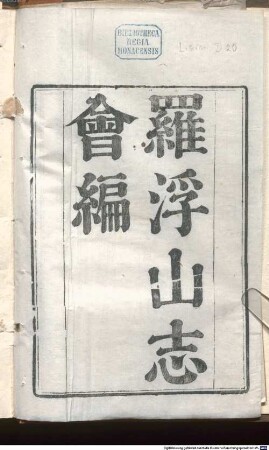 BIBLIOTHECA
REGIA
MONACENSIS
羅浮山志
會編